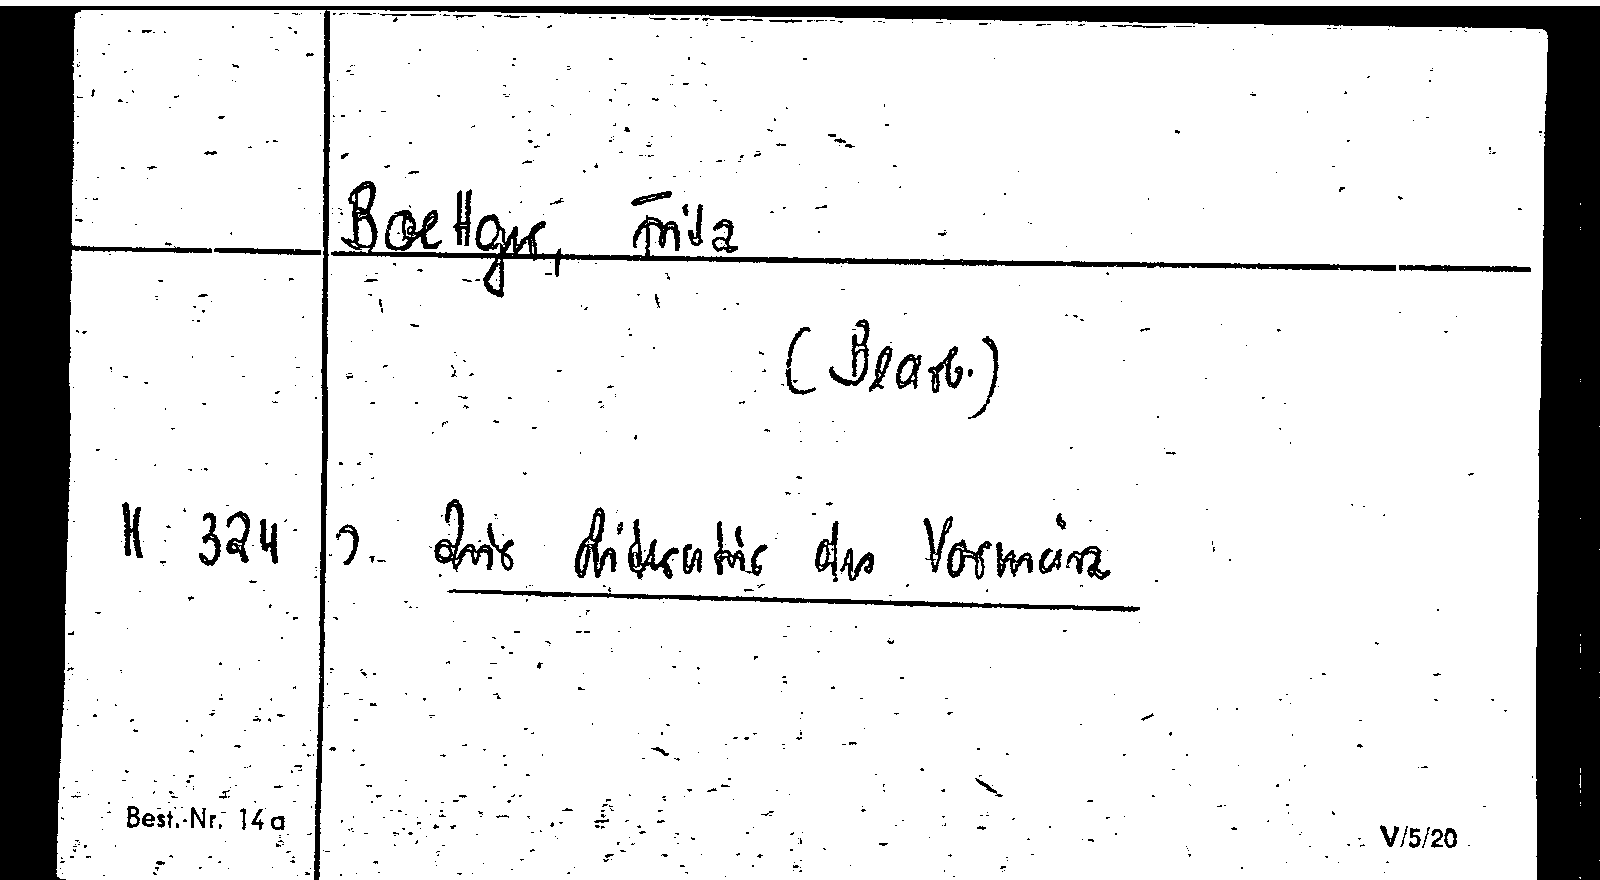 Boettger, Fritz
(Bearb.)
H 324 s. Zur Literatur des Vormärz
Best.-Nr. 14a V/5/20